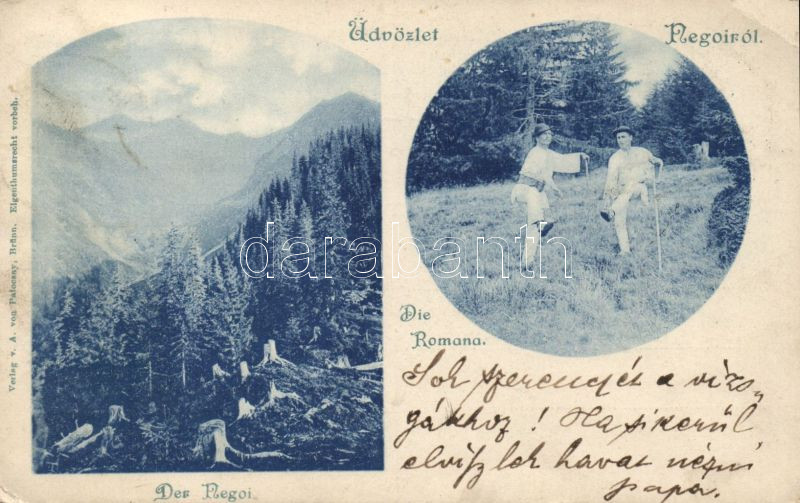 Üdvözlet Negoiról.
Verlag v. A. von Paloczay, Brünn. Eigenthumsrecht vorbeh.
darabanth.com
Die
Romana.
Der Negoi.
Sok szerencsét a vizs-
gákhoz! Ha sikerül
elviszlek havat nézni
papa.